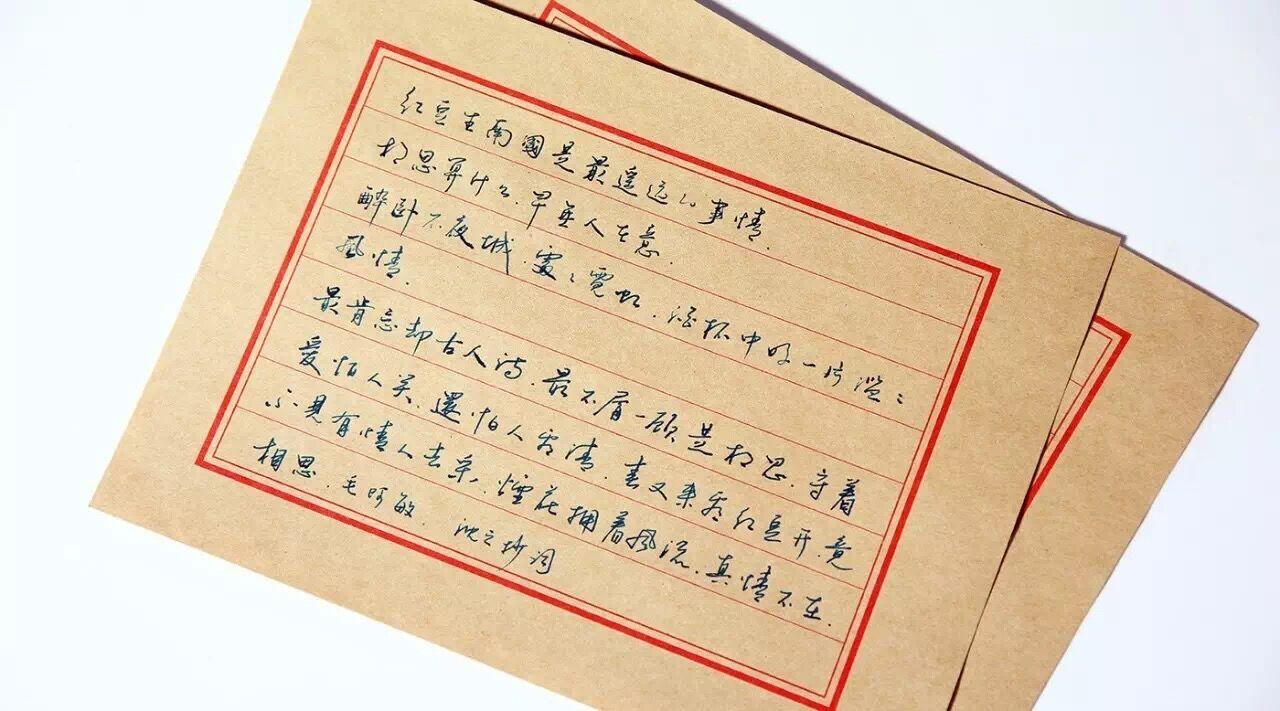 红豆生南國是最遥远的事情.
相思算什么.早無人在意.
醉卧不夜城.處〻霓虹.酒杯中好一片滥〻
風情.
最肯忘却古人诗.最不屑一顾是相思.守着
爱怕人笑.還怕人看清.春又来看红豆开竟
不見有情人去采.煙花拥着風流.真情不在.
相思.毛阿敏. 抄词